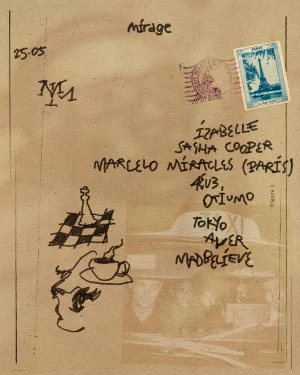 mirage
25.05
M
IZABELLE
SASHA COOPER
MARCELO MIRACLES (PARIS)
4EU3,
OTIUMO
TOKYO
AVER
MADBELIEVE
Figure 1